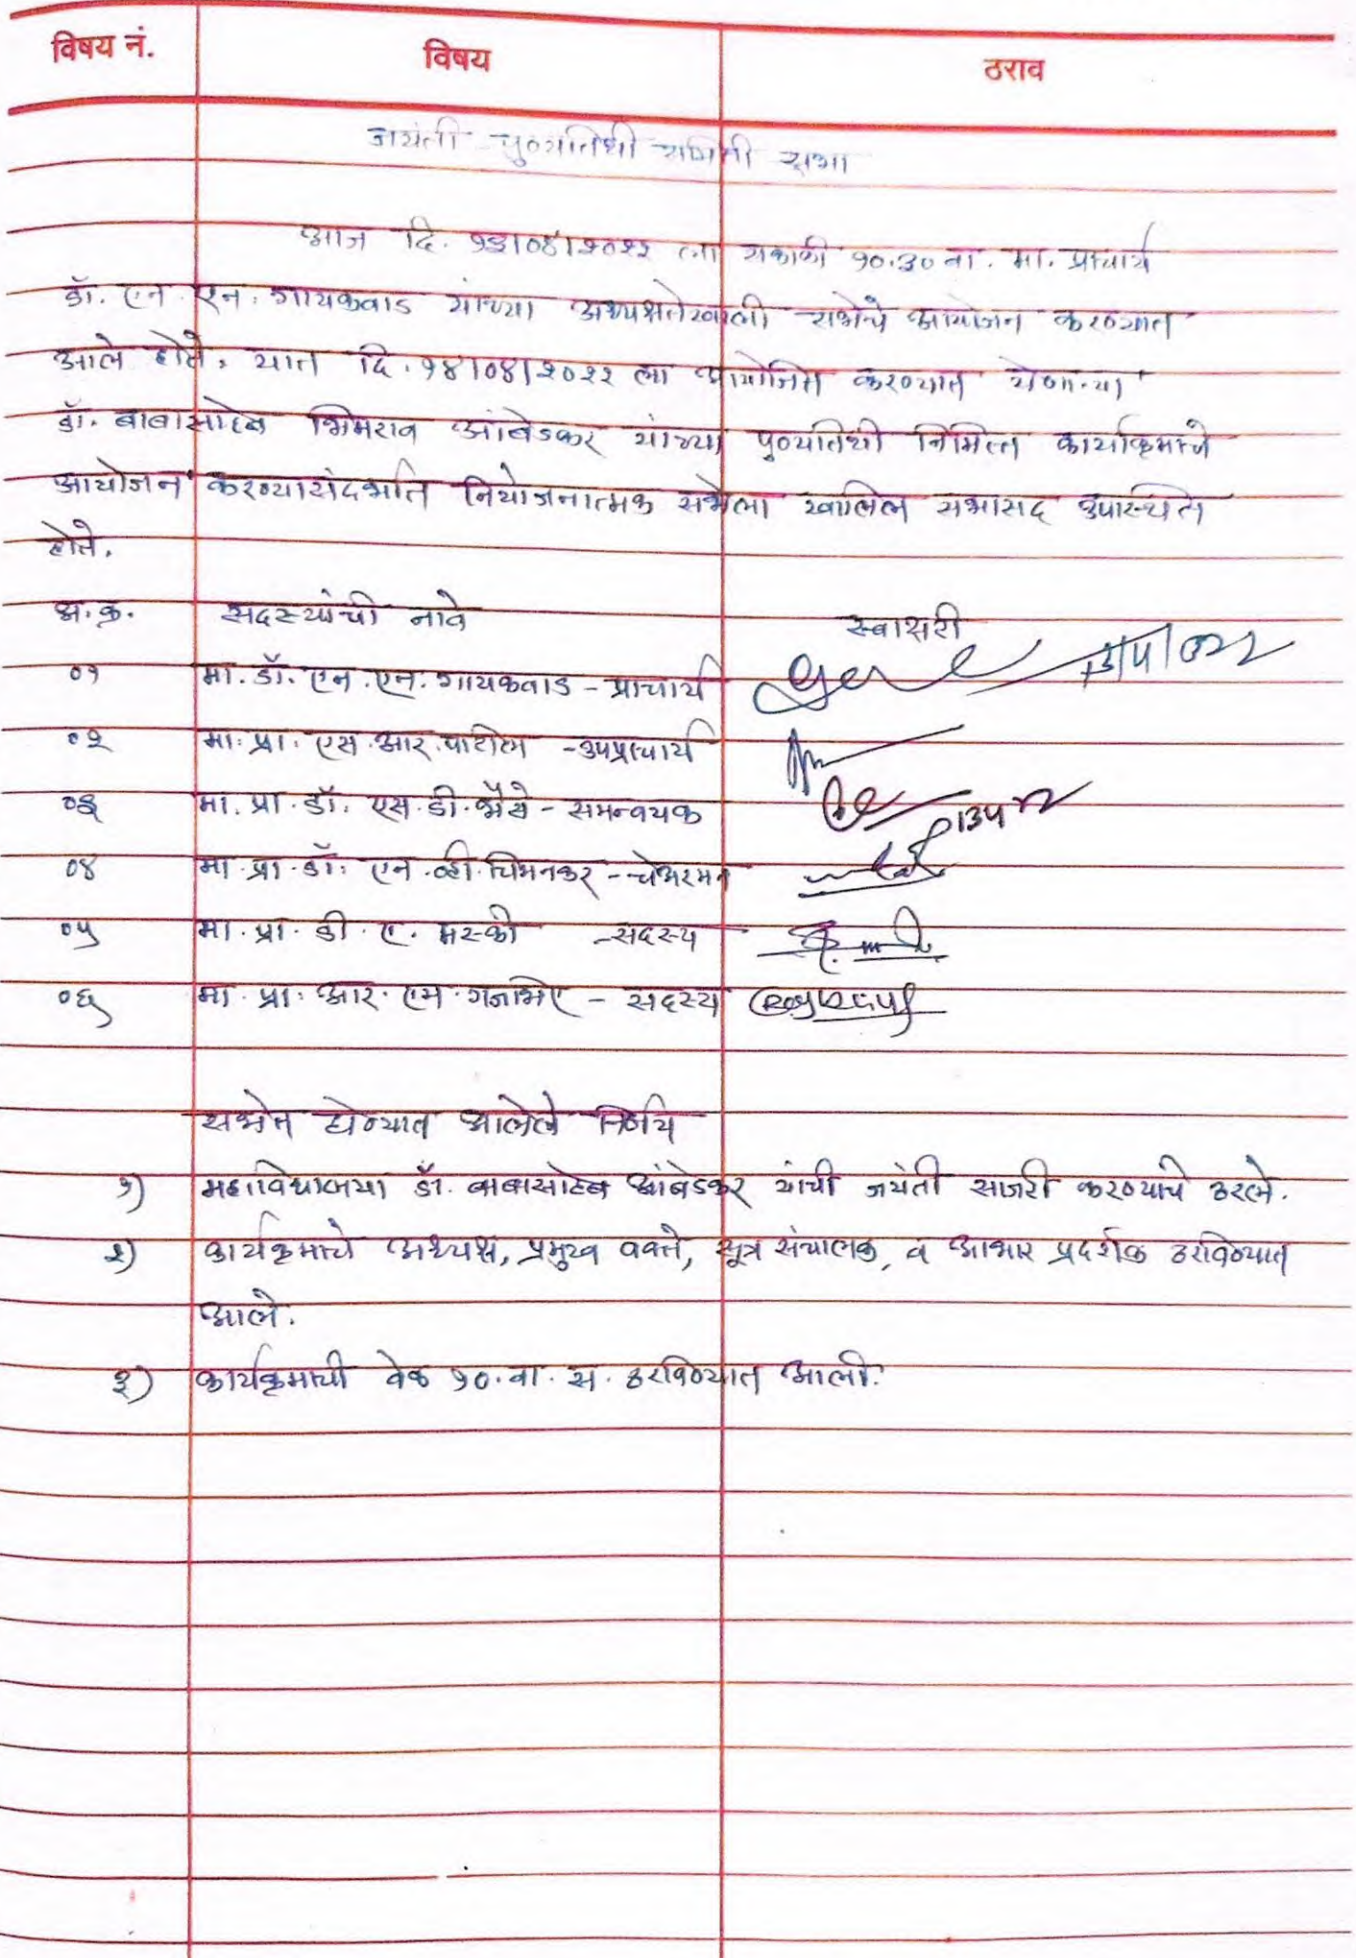 विषय नं. विषय ठराव
जयंती पुण्यतिथी समिती सभा
आज दि. १३/०४/२०२२ ला सकाळी १०.३० वा. मा. प्राचार्य
डॉ. एन. एन. गायकवाड यांच्या अध्यक्षतेखाली सभेचे आयोजन करण्यात
आले होते, यात दि. १४/०४/२०२२ ला आयोजित करण्यात येणाऱ्या
डॉ. बाबासाहेब भिमराव आंबेडकर यांच्या पुण्यतिथी निमित्त कार्यक्रमाचे
आयोजन करण्यासंदर्भात नियोजनात्मक सभेला खालिल सभासद उपस्थित
होते.
अ.क्र. सदस्यांची नावे स्वाक्षरी
०१ मा. डॉ. एन. एन. गायकवाड - प्राचार्य
०२ मा. प्रा. एस. आर. पाटील - उपप्राचार्य
०३ मा. प्रा. डॉ. एस. डी. भैसे - समन्वयक
०४ मा. प्रा. डॉ. एन. व्ही. चिमनकर - चेअरमन
०५ मा. प्रा. डी. ए. मस्की - सदस्य
०६ मा. प्रा. आर. एम. गजभिए - सदस्य
सभेत घेण्यात आलेले निर्णय
१) महाविद्यालया डॉ. बाबासाहेब आंबेडकर यांची जयंती साजरी करण्याचे ठरले.
२) कार्यक्रमाचे अध्यक्ष, प्रमुख वक्ते, सूत्र संचालक, व आभार प्रदर्शक ठरविण्यात
आले.
३) कार्यक्रमाची वेळ १०. वा. स. ठरविण्यात आली.